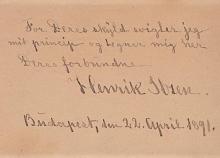 For Deres skyld svigter jeg
mit princip og tegner mig her
Deres forbundne
Henrik Ibsen.
Budapest, den 22. April 1891.